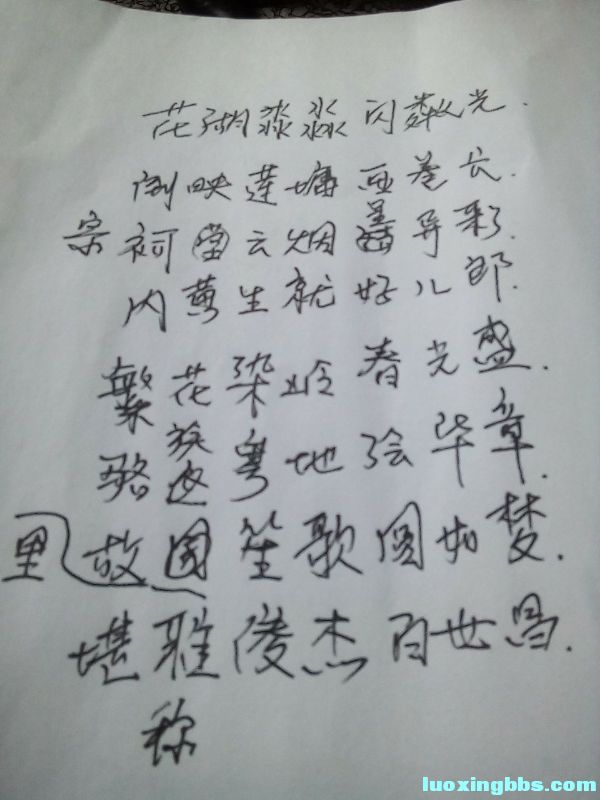 花湖淼淼闪粼光.
倒映莲塘画卷长.
宗祠堂云烟蕃异彩.
内黄生就好儿郎.
繁花染岭春光盛.
骆族返粤地绘华章.
里故国笙歌圆如梦.
堪雅俊杰百世昌.
称
luoxingbbs.com